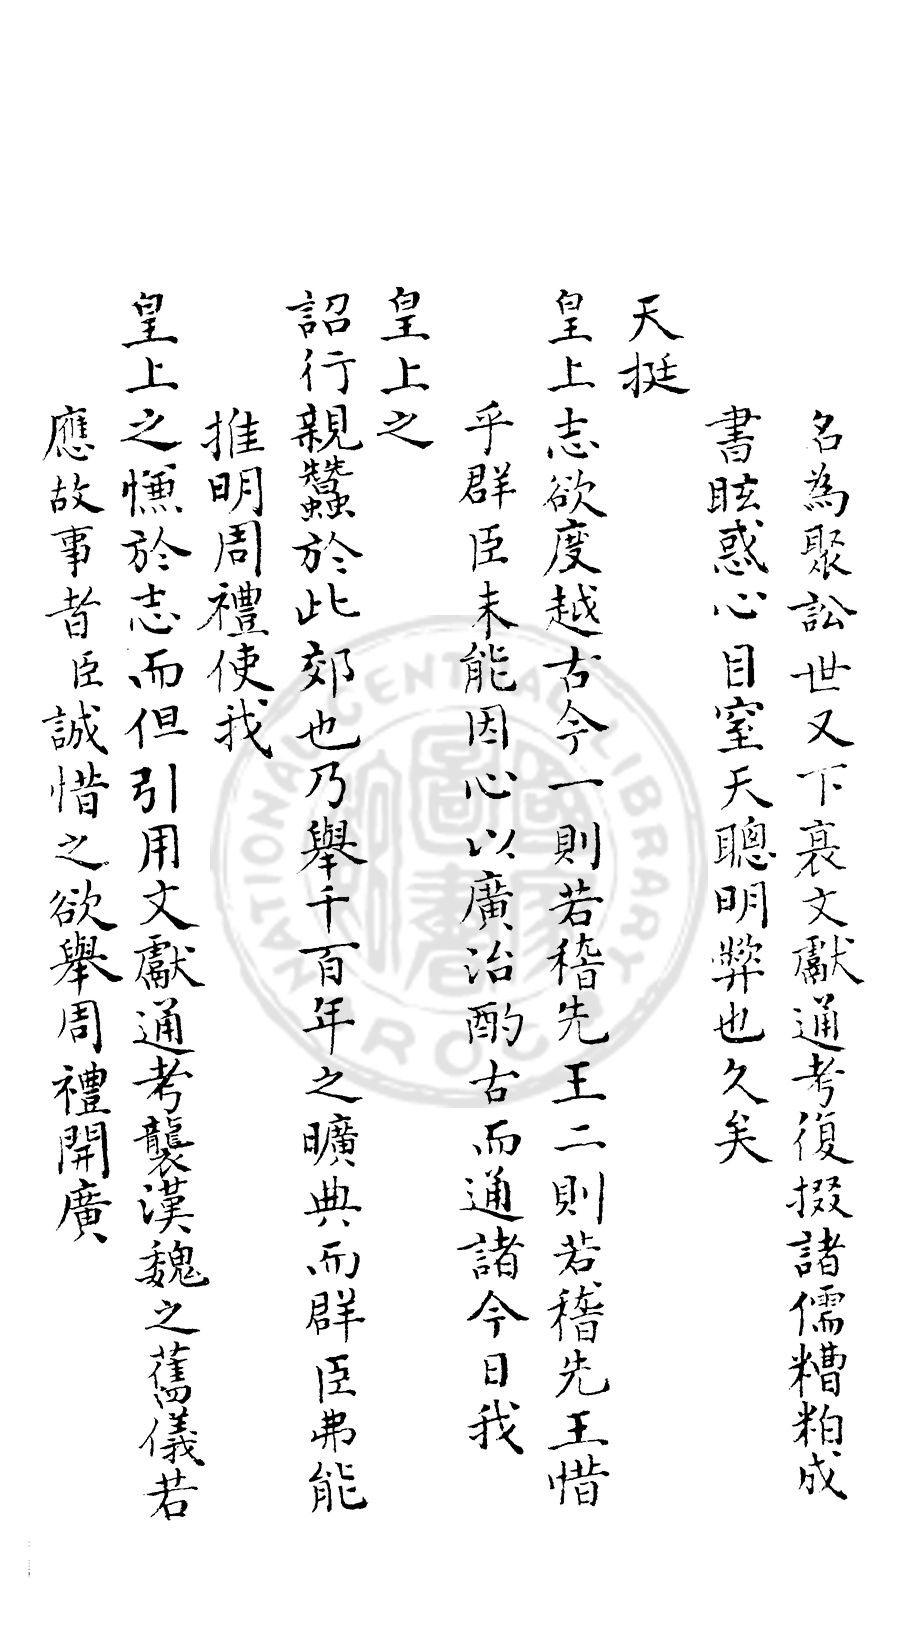 名為聚訟世又下裒文獻通考復掇諸儒糟粕成
書眩惑心目窒天聰明弊也久矣
天挺
皇上志欲度越古今一則若稽先王二則若稽先王惜
乎群臣未能因心以廣治酌古而通諸今日我
皇上之
詔行親蠶於此郊也乃舉千百年之曠典而群臣弗能
推明周禮使我
皇上之慊於志而但引用文獻通考襲漢魏之舊儀若
應故事者臣誠惜之欲舉周禮開廣
NATIONAL CENTRAL LIBRARY
R.O.C.
國家圖書館